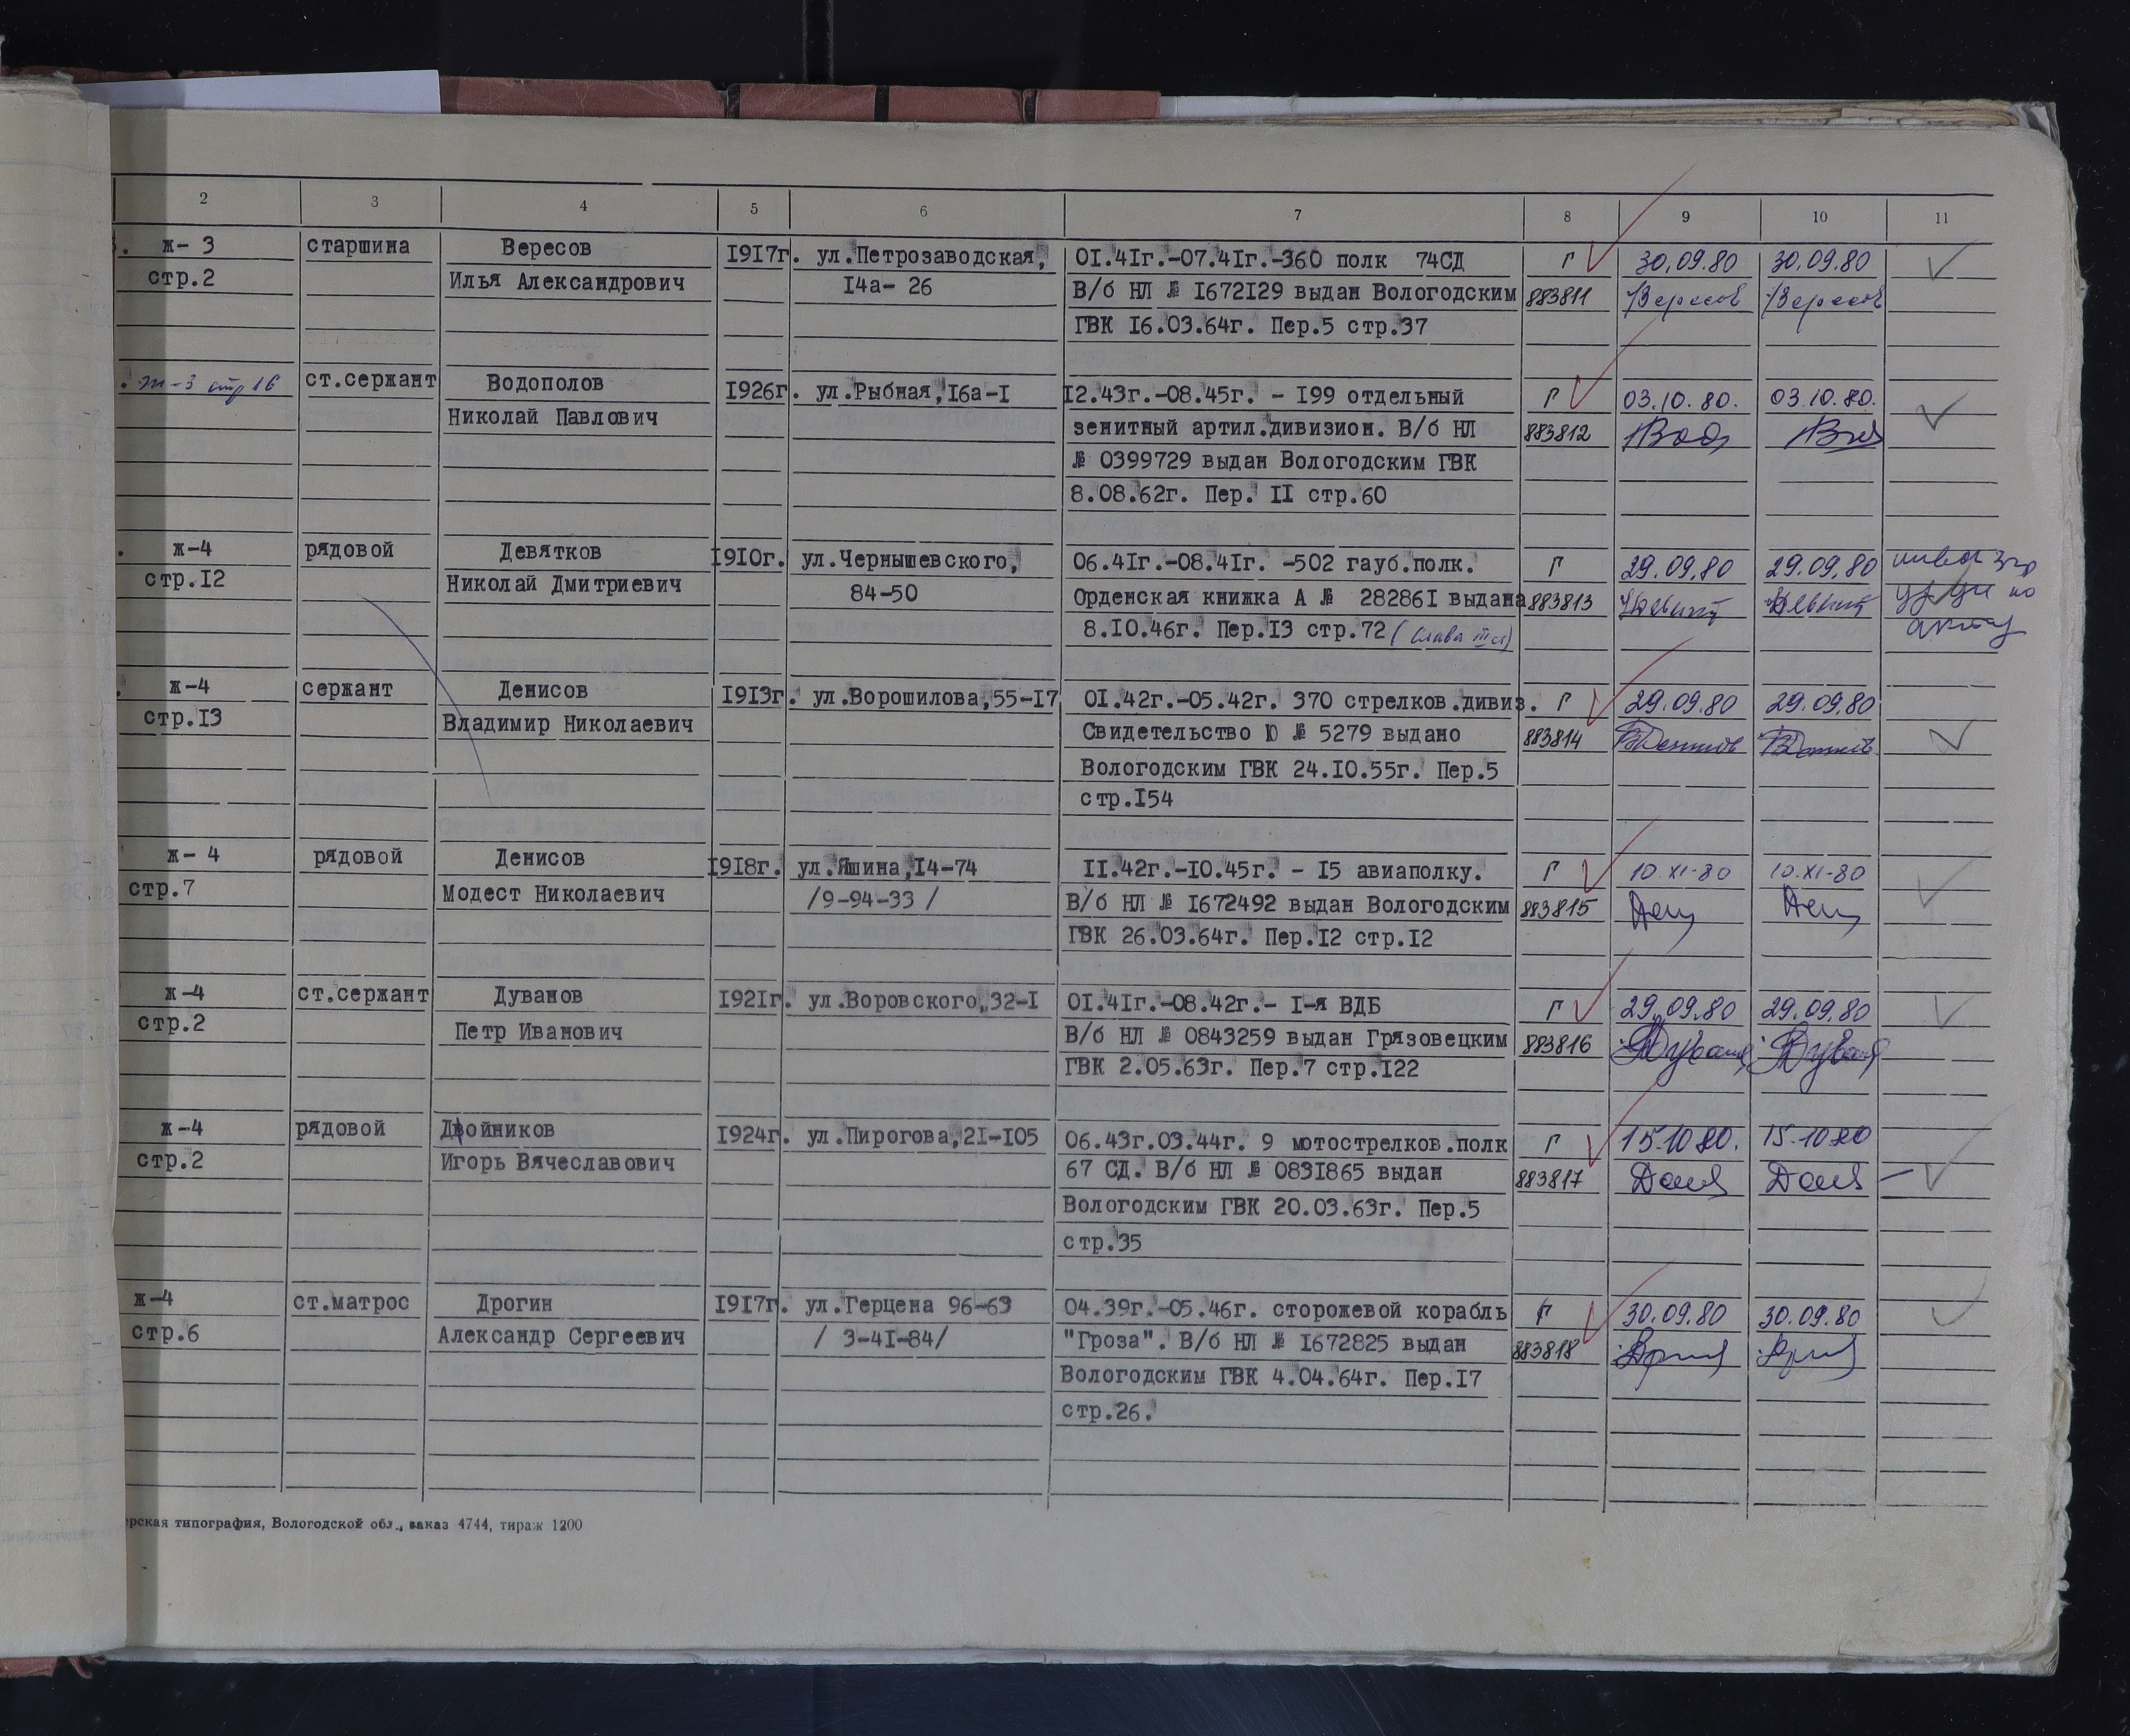 2 3 4 5 6 7 8 9 10 11
ж- 3 старшина Вересов 1917г. ул.Петрозаводская, 01.41г.-07.41г.-360 полк 74СД Г 30.09.80 30.09.80
стр.2 Илья Александрович 14а- 26 В/б НЛ № 1672129 выдан Вологодским 883811 Вересов Вересов
ГВК 16.03.64г. Пер.5 стр.37
ж-3 стр 16 ст.сержант Водополов 1926г. ул.Рыбная,16а-1 12.43г.-08.45г. - 199 отдельный Г 03.10.80. 03.10.80.
Николай Павлович зенитный артил.дивизион. В/б НЛ 883812
№ 0399729 выдан Вологодским ГВК
8.08.62г. Пер. 11 стр.60
ж-4 рядовой Девятков 1910г. ул.Чернышевского, 06.41г.-08.41г. -502 гауб.полк. Г 29.09.80 29.09.80
стр.12 Николай Дмитриевич 84-50 Орденская книжка А № 282861 выдана 883813
8.10.46г. Пер.13 стр.72 (Слава III ст) акту
ж-4 сержант Денисов 1913г. ул.Ворошилова,55-17 01.42г.-05.42г. 370 стрелков.дивиз. Г 29.09.80 29.09.80
стр.13 Владимир Николаевич Свидетельство Ю № 5279 выдано 883814
Вологодским ГВК 24.10.55г. Пер.5
стр.154
ж- 4 рядовой Денисов 1918г. ул.Яшина,14-74 11.42г.-10.45г. - 15 авиаполку. Г 10.XI-80 10.XI-80
стр.7 Модест Николаевич /9-94-33 / В/б НЛ № 1672492 выдан Вологодским 883815
ГВК 26.03.64г. Пер.12 стр.12
ж-4 ст.сержант Дуванов 1921г. ул.Воровского,32-1 01.41г.-08.42г.- 1-я ВДБ Г 29.09.80 29.09.80
стр.2 Петр Иванович В/б НЛ № 0843259 выдан Грязовецким 883816
ГВК 2.05.63г. Пер.7 стр.122
ж-4 рядовой Двойников 1924г. ул.Пирогова,21-105 06.43г.03.44г. 9 мотострелков.полк Г 15.10.80. 15.10.80
стр.2 Игорь Вячеславович 67 СД. В/б НЛ № 0831865 выдан 883817
Вологодским ГВК 20.03.63г. Пер.5
стр.35
ж-4 ст.матрос Дрогин 1917г. ул.Герцена 96-63 04.39г.-05.46г. сторожевой корабль Г 30.09.80 30.09.80
стр.6 Александр Сергеевич / 3-41-84/ "Гроза". В/б НЛ № 1672825 выдан 883818
Вологодским ГВК 4.04.64г. Пер.17
стр.26.
типография, Вологодской обл., заказ 4744, тираж 1200